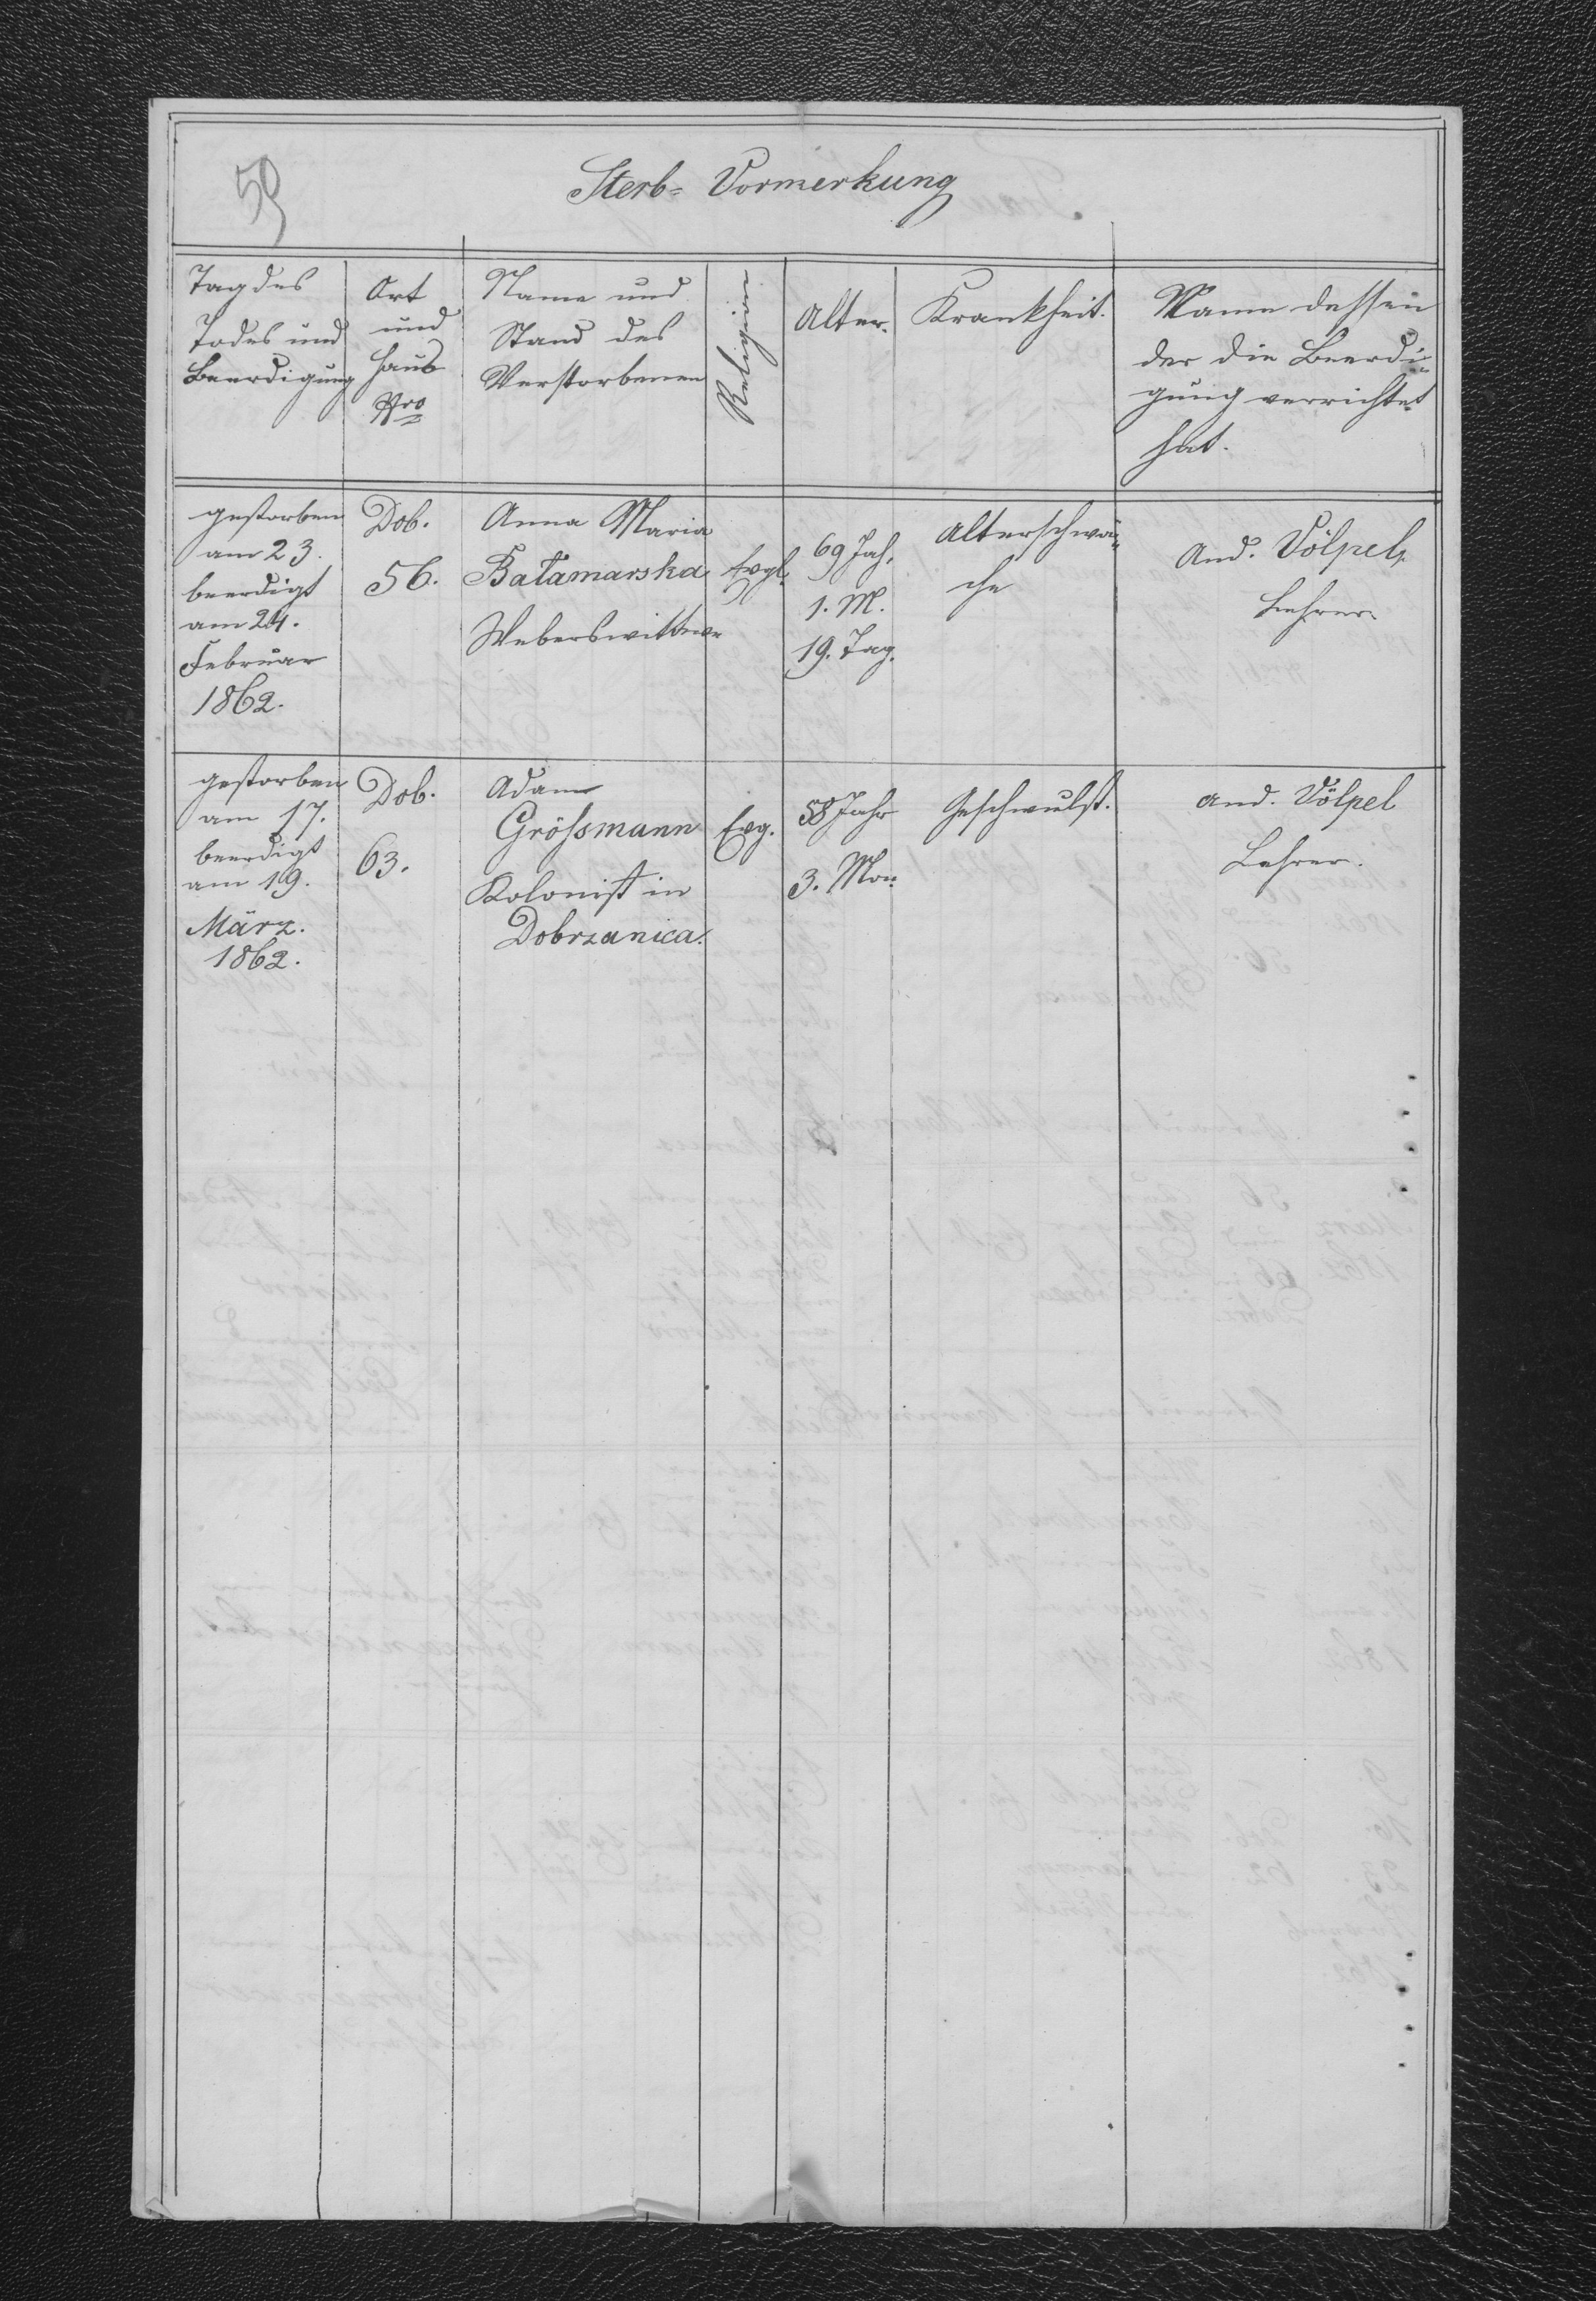 59
Sterb= Vormerkung
Tag des
Todes und
Beerdigung
Ort
und
Haus
Nro
Name und
Stand des
Verstorbenen
Religion
Alter.
Krankheit.
Name dessen
der die Beerdi=
gung verrichtet
hat.
gestorben
am 23.
beerdigt
am 24.
Februar
1862.
Dob.
56.
Anna Maria
Batamarska
Weberswittwe
Evgl.
69 Jah.
1. M.
19. Tag.
Alterschwä=
che
And. Völpel,
Lehrer.
gestorben
am 17.
beerdigt
am 19.
März.
1862.
Dob.
63.
Adam
Grössmann
Kolonist in
Dobrzanica.
Evg.
58 Jahr
3. Mon.
Geschwulst.
And. Völpel
Lehrer.